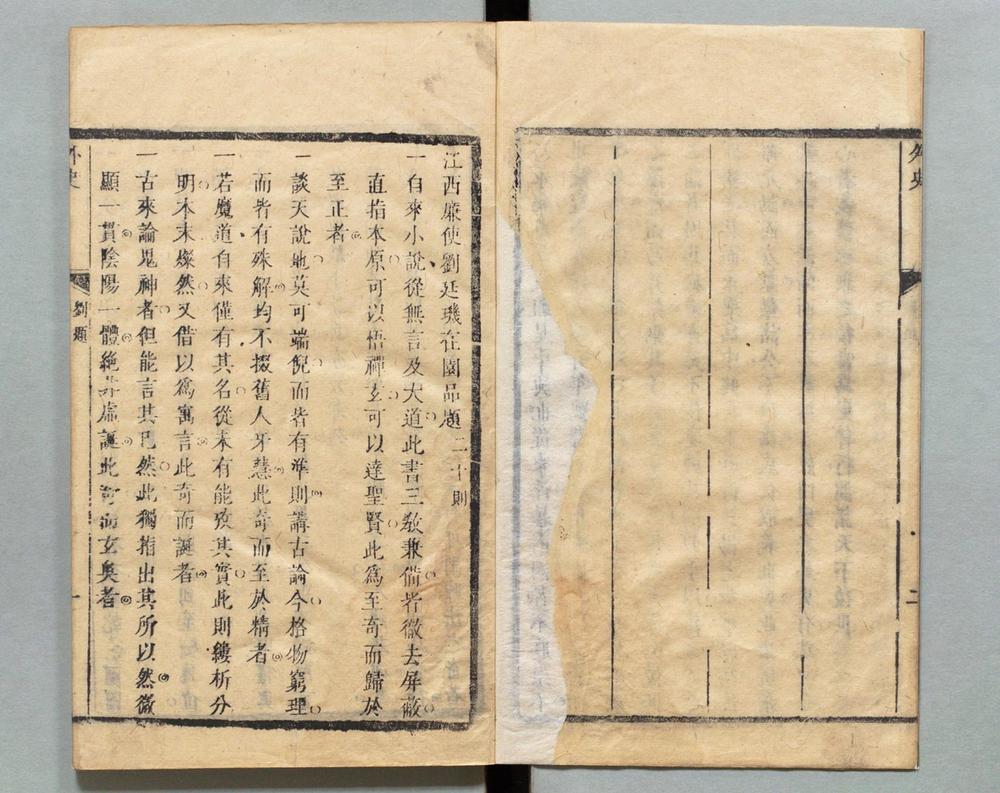 外史
二
江西廉使劉廷璣在園品題二十則
一自來小說從無言及大道此書三敎兼備皆徹去屏蔽
直指本原可以悟禪玄可以達聖賢此爲至奇而歸於
至正者
一談天說地莫可端倪而皆有準則講古論今格物窮理
而皆有殊解均不掇舊人牙慧此奇而至於精者
一若魔道自來僅有其名從未有能攷其實此則縷析分
明本末燦然又借以爲寓言此奇而誕者
一古來論鬼神者但能言其已然此獨指出其所以然微
顯一貫陰陽一體絶非虛誕此奇而玄奥者
外史
劉題
一